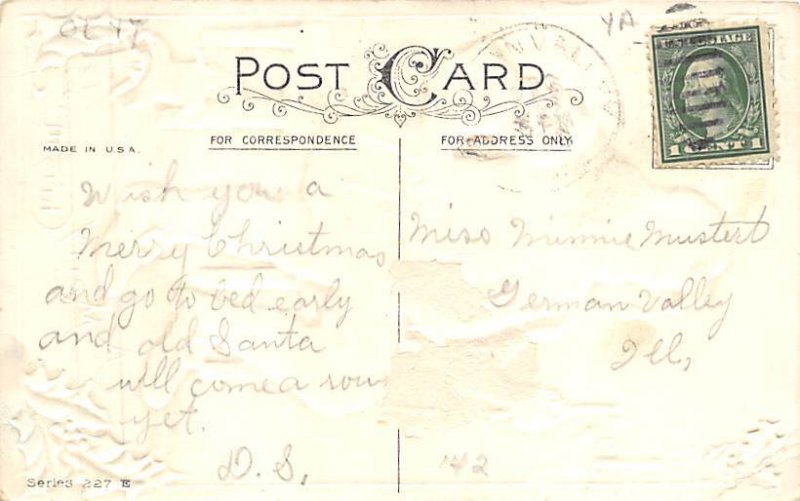 YA
POST CARD
FOR CORRESPONDENCE
FOR ADDRESS ONLY
MADE IN U.S.A.
POSTAGE
1 CENT 1
Wish you a
Merry Christmas
and go to bed early
and old Santa
will come a roun
yet.
D. S.
Miss Minnie Mustert
German Valley
Ill,
142
Series 227 E